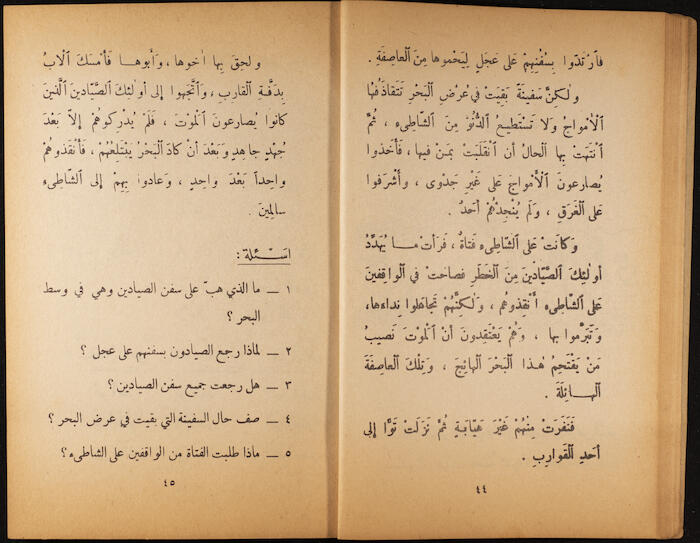 فارْتدّوا بِسُفُنِهِمْ عَلى عَجَلٍ لِيَحْموها مِنَ الْعاصِفَةِ .
ولٰكنَّ سَفينةً بَقِيَتْ في عُرْضِ الْبَحْرِ تَتَقاذَفُها
الْأَمْواجُ ولا تَسْتَطيعُ الدُّنُوَّ مِنَ الشّاطِىءِ ، ثُمَّ
انْتَهَتْ بِها الْحالُ أنِ انْقَلَبَتْ بِمَنْ فيها ، فَأَخَذوا
يُصارعونَ الْأَمْواجَ عَلى غَيْرِ جَدْوى ، وَأَشْرَفوا
عَلى الْغَرَقِ ، وَلَمْ يُنْجِدْهُمْ أَحَدٌ .
وَكانَتْ عَلى الشّاطِىءِ فَتاةٌ ، فَرَأتْ مــا يُهَدِّدُ
أولٰئِكَ الصَّيّادينَ مِنَ الْخَطَرِ فصاحَتْ في الْواقِفينَ
عَلى الشّاطِىءِ أنْقِذوهُم ، ولٰكنَّهُمْ تَجاهَلوا نِداءَها ،
وَتَبَرَّموا بها ، وَهُمْ يَعْتَقِدونَ أنَّ الْمَوْتَ نَصيبُ
مَنْ يَقْتَحِمُ هٰذا الْبَحْرَ الْهائِجَ ، وَتِلْكَ الْعاصِفَةَ
الْهــائِلَةَ .
فَنَفَرَتْ مِنْهُمْ غَيْرَ هَيّابَةٍ ثُمَّ نَزَلَتْ تَوًّا إلى
أحَدِ الْقَوارِبِ .
٤٤
ولحِقَ بِها أخوها ، وَأبوهــا فَأمْسَكَ الْأبُ
بِدَفَّةِ الْقارِبِ ، وَاتَّجَهوا إلى أولٰئِكَ الصَّيّادينَ الَّذينَ
كانوا يُصارِعونَ الْمَوْتَ ، فَلَمْ يُدْرِكوهُمْ إلاّ بَعْدَ
جُهْدٍ جاهِدٍ وَبَعْدَ أنْ كادَ الْبَحْرُ يَبْتَلِعُهُمْ ، فَأنْقَذوهُمْ
واحِداً بَعْدَ واحِدٍ ، وَعادوا بِهِمْ إلى الشّاطىءِ
سالِمينَ .
اسْئلة :
١ ــ ما الذي هبّ على سفن الصيادين وهي في وسط
البحر ؟
٢ ــ لماذا رجع الصيادون بسفنهم على عجل ؟
٣ ــ هل رجعت جميع سفن الصيادين ؟
٤ ــ صف حال السفينة التي بقيت في عرض البحر ؟
٥ ــ ماذا طلبت الفتاة من الواقفين على الشاطىء ؟
٤٥